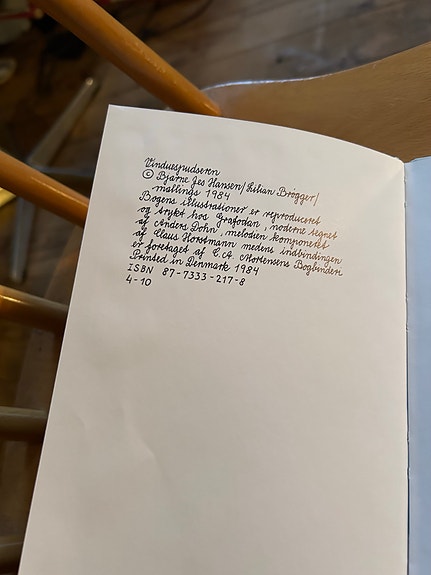 Vinduespudseren
© Bjarne Jes Hansen/Lilian Brøgger/
mallings 1984
Bogens illustrationer er reproduceret
og trykt hos Grafodan, noderne tegnet
af Anders Dohn, melodien komponeret
af Claus Horstmann medens indbindingen
er foretaget af C.A. Mortensens Bogbinderi
Printed in Denmark 1984
ISBN 87-7333-217-8
4-10